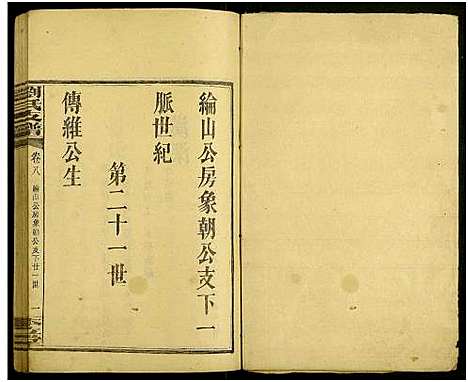 綸山公房象朝公支下一
脈世紀
第二十一世
傳維公生
劉氏支譜
卷八
綸山公房象朝公支下廿一世
一